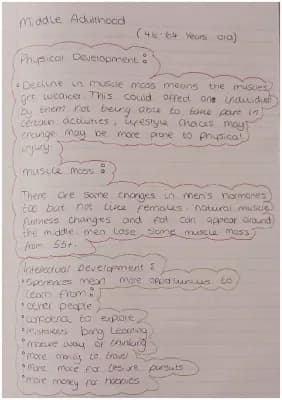 Middle Adulthood
(46-64 Years old)
Physical Development:
• Decline in muscle mass means the muscles
get weaker. This could affect an individual
by them not being able to take part in
certain activities, lifestyle choices may
change may be more prone to physical
injury
muscle mass:
There are some changes in men's hormones
too but not like females. natural muscle
changes and fat can appear around
the middle. men lose some muscle mass
from 55+.
Intellectual Development:
• experiences mean more opportunities to
learn from:
• other people
• confidence to explore
• mistakes bring learning
• mature way of thinking
• more money to travel
• more for leisure pursuits
• more money for hobbies